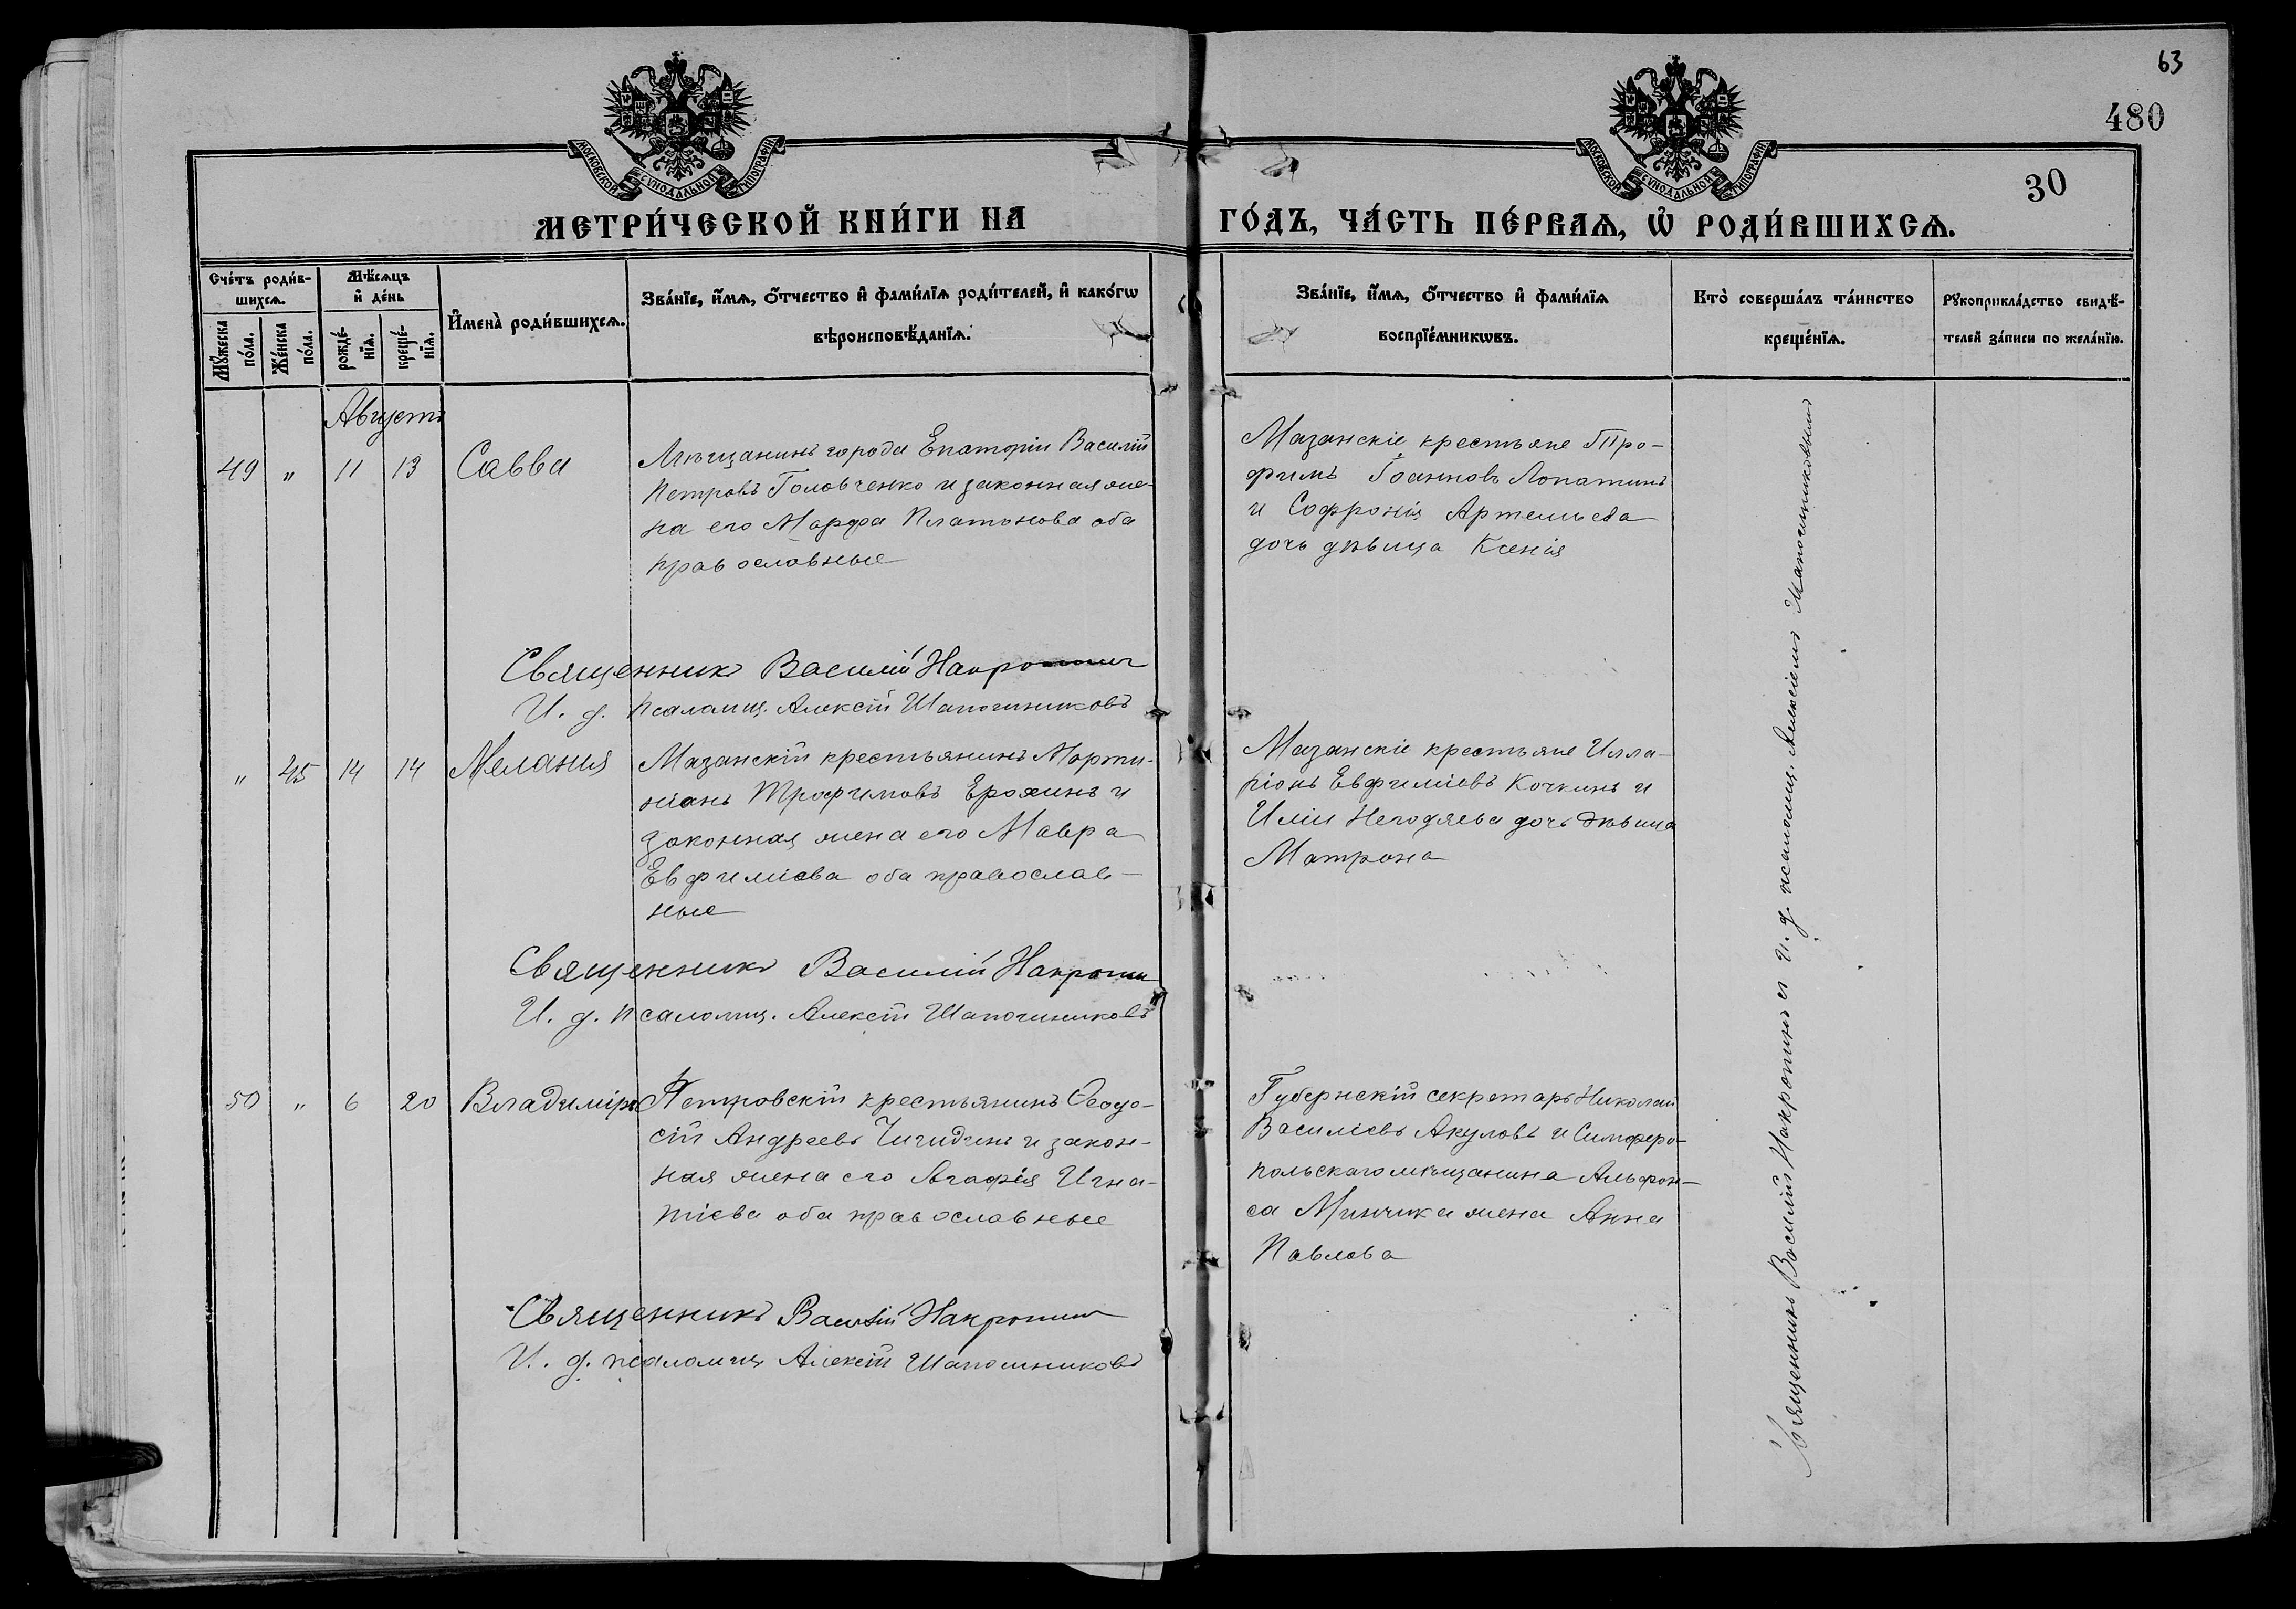 63
480
30
МОСКОВСКОЙ СѴНОДАЛЬНОЙ ТИПОГРАФІИ
МОСКОВСКОЙ СѴНОДАЛЬНОЙ ТИПОГРАФІИ
МЕТРИ́ЧЕСКОЙ КНИ́ГИ НА ГО́ДЪ, ЧА́СТЬ ПЕ́РВАѦ, Ѡ҆ РОДИ́ВШИХСѦ.
Сче́тъ роди́в-
шихсѧ.
Мꙋ́жеска по́ла.
Же́нска по́ла.
Мѣ́сѧцъ
и҆ де́нь
рожде́-
нїѧ.
креще́-
нїѧ.
И҆мена̀ роди́вшихсѧ.
Зва́нїе, и҆́мѧ, ѻ҆́тчество и҆ фами́лїѧ роди́телей, и҆ како́гѡ
вѣроисповѣ́данїѧ.
Зва́нїе, и҆́мѧ, ѻ҆́тчество и҆ фами́лїѧ
воспрїе́мникѡвъ.
Кто̀ соверша́лъ та́инство
креще́нїѧ.
Рꙋкоприкла́дство свидѣ́-
телей за́писи по жела́нїю.
Августъ
49 " 11 13 Савва
Мѣщанинъ города Евпаторіи Василій
Петровъ Головченко и законная же-
на его Марфа Платонова оба
православные
Мазанскіе крестьяне Тро-
фимъ Іоанновъ Лопатинъ
и Софронія Артемьева
дочь дѣвица Ксенія
Священникъ Василій
И. д. псаломщ. Алексій Шапошниковъ
" 45 14 14 Меланія
Мазанскій крестьянинъ Марти-
ніанъ Трофимовъ Ерохинъ и
законная жена его Мавра
Евфиміева оба православ-
ные
Мазанскіе крестьяне Илла-
ріонъ Евфиміевъ Кочкинъ и
Иліи Негодяева дочь дѣвица
Матрона
Священникъ Василій
И. д. псаломщ. Алексій Шапошниковъ
50 " 6 20 Владиміръ
Петровскій крестьянинъ Ѳеодо-
сій Андреевъ и закон-
ная жена его Агафія Игна-
тіева оба православные
Губернскій секретарь Николай
Василіевъ Акуловъ и Симферо-
польскаго мѣщанина Альфон-
са жена Анна
Павлова
Священникъ Василій
И. д. псаломщ Алексій Шапошниковъ
Священникъ Василій съ и. д. псаломщ. Алексіемъ Шапошниковымъ